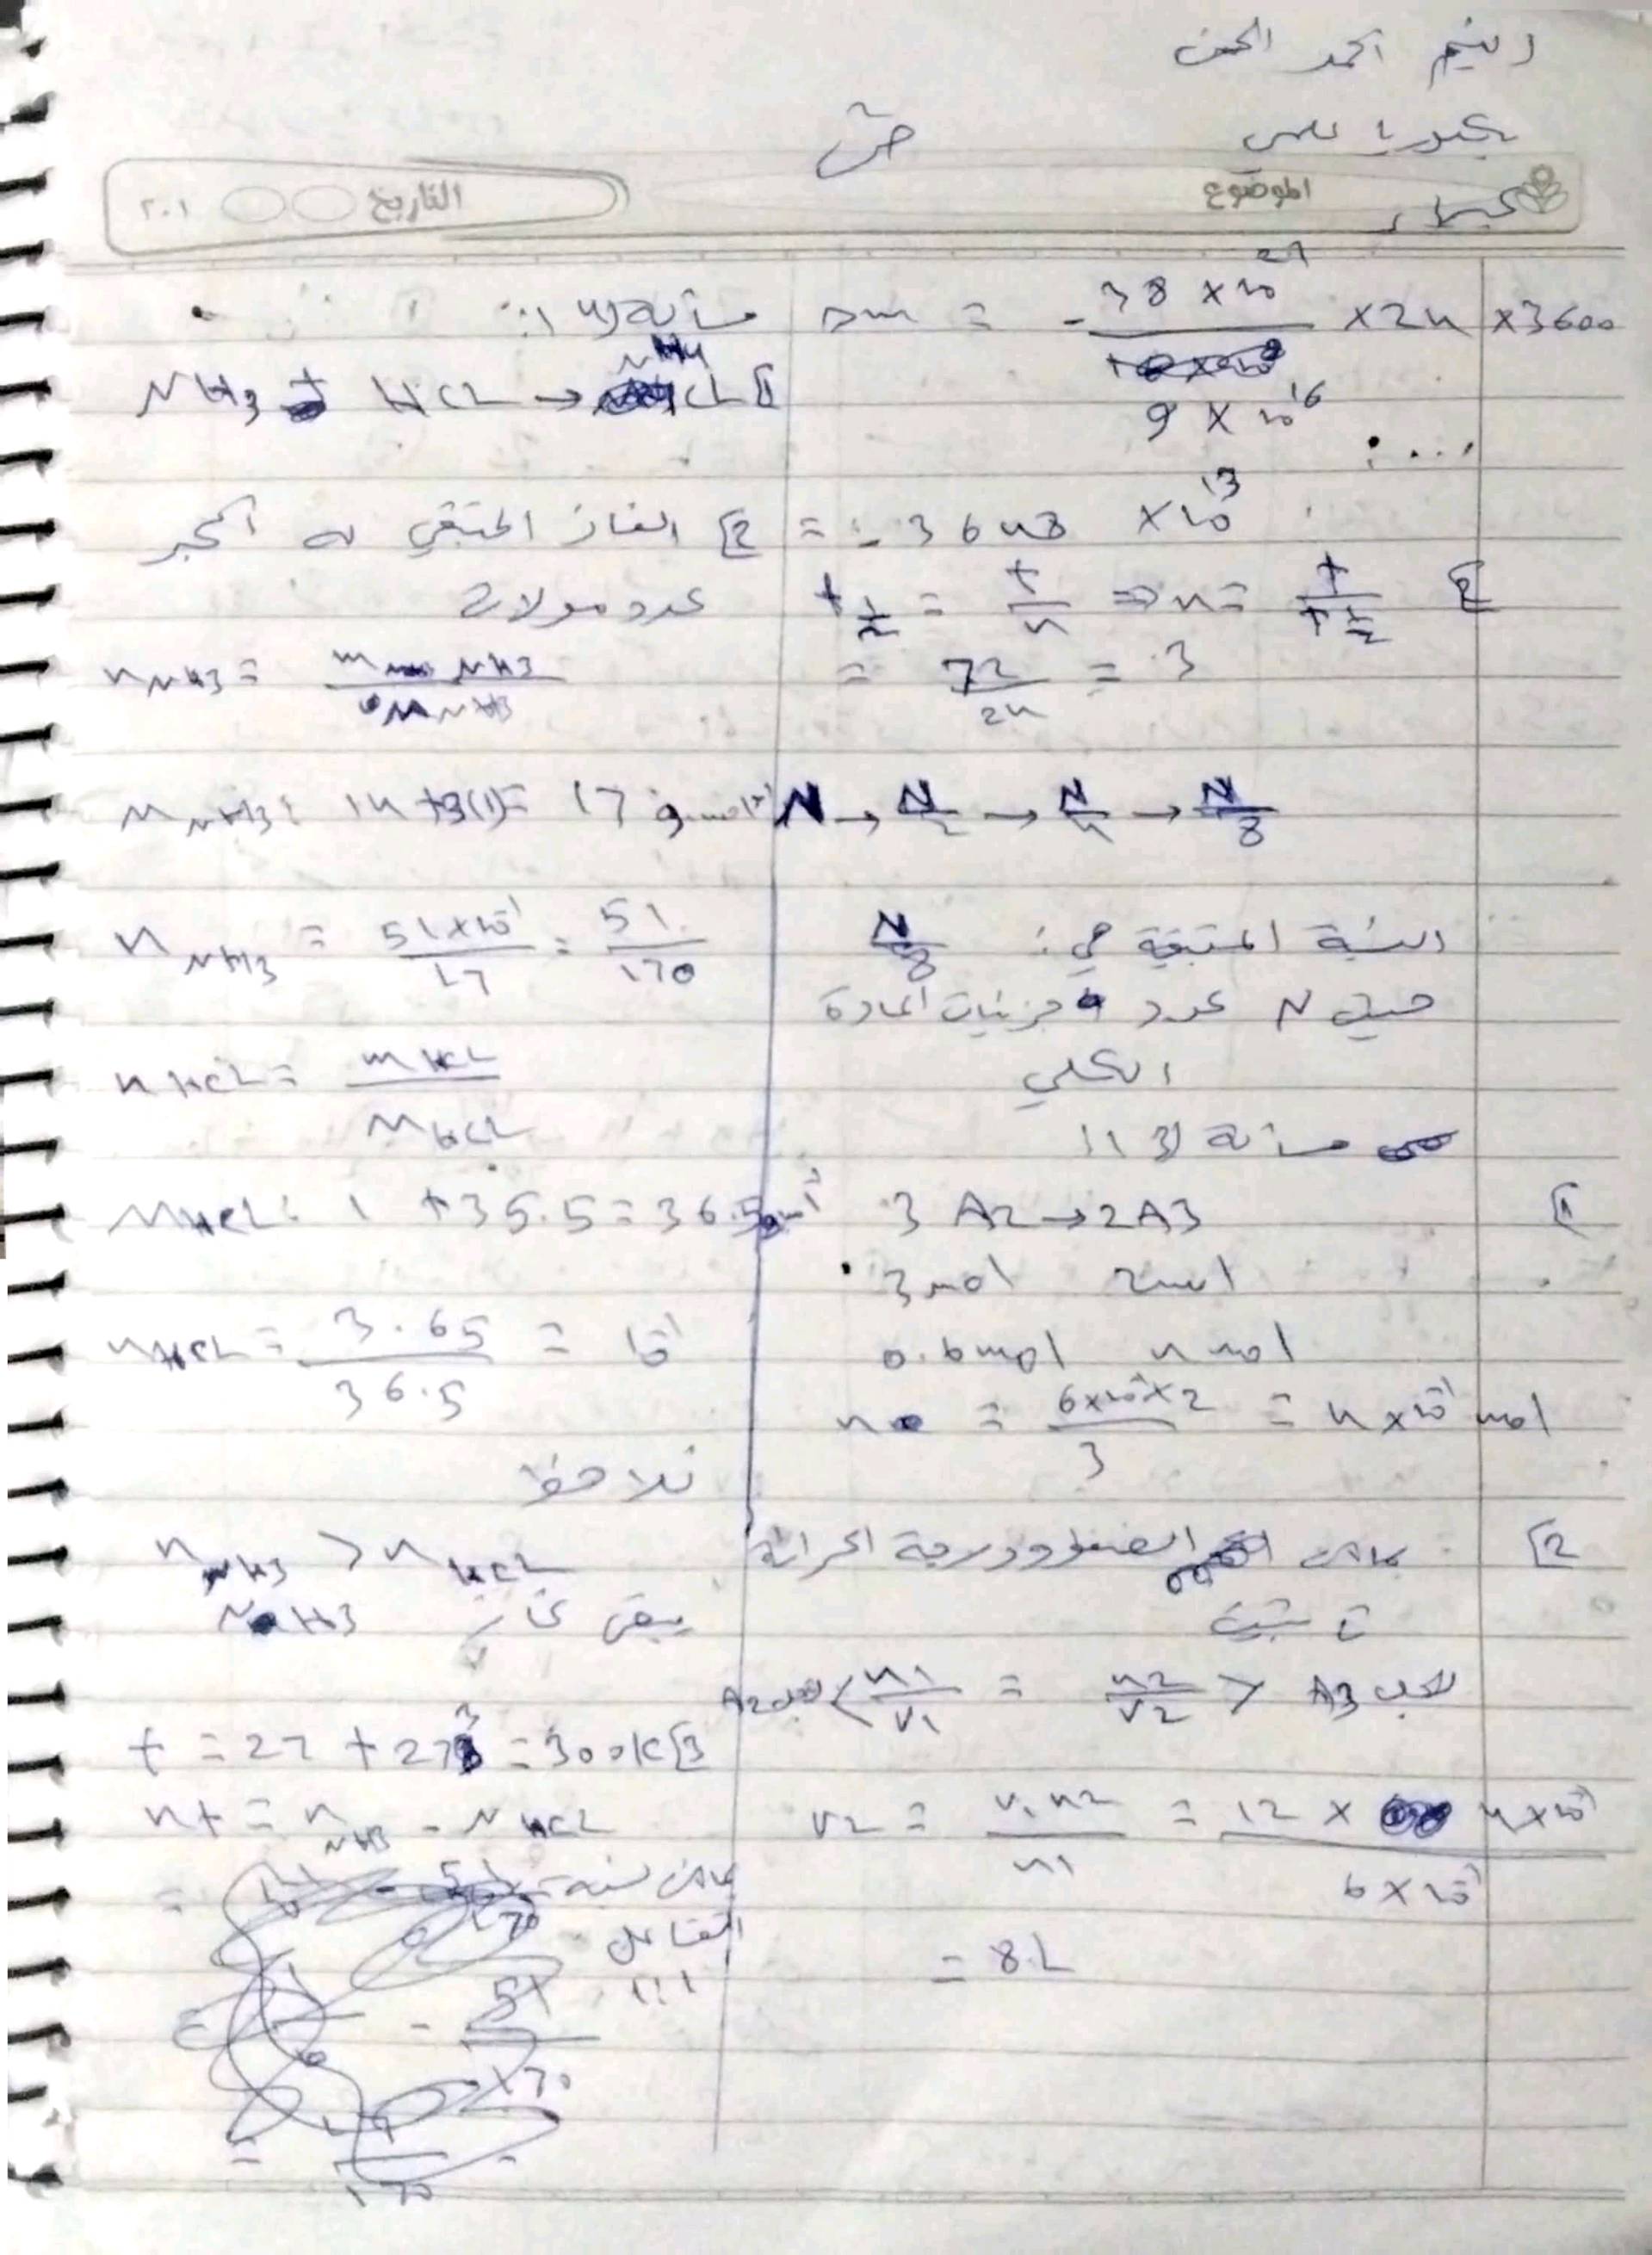 رنيم احمد الحسن
بكلوريا علمي
كيمياء
الموضوع
التاريخ ٢٠١
Δm = - 38 × 10^27 / 9 × 10^16 × 24 × 3600
= - 3648 × 10^13
2] t 1/2 = t/n ⇒ n = t / t 1/2
= 72/24 = 3
N → N/2 → N/4 → N/8
النسبة المتبقية هي: N/8
حيث N عدد جزيئات المادة
الكلي
مسألة (3):
1] 3 A2 → 2 A3
3 mol 2 mol
0.6 mol n mol
n = 6×10^-1×2 / 3 = 4 × 10^-1 mol
2] الضغط ودرجة الحرارة
ثابتة
A2 < n1/V1 = n2/V2 > A3
V2 = V1 n2 / n1 = 12 × 4×10^-1 / 6 × 10^-1
= 8 L
مسألة (4):
1] NH3 + HCL → NH4CL
2] الغاز المتبقي له أكبر
عدد مولات
nNH3 = mNH3 / MNH3
MNH3: 14+3(1) = 17 g.mol^-1
nNH3 = 51×10^-1 / 17 = 51 / 170
nHCL = mHCL / MHCL
MHCL: 1 + 35.5 = 36.5 g.mol^-1
nHCL = 3.65 / 36.5 = 10^-1
نلاحظ
nNH3 > nHCL
يبقى غاز NH3
3] t = 27 + 273 = 300K
nt = nNH3 - nHCL
نسبة
التفاعل
1:1